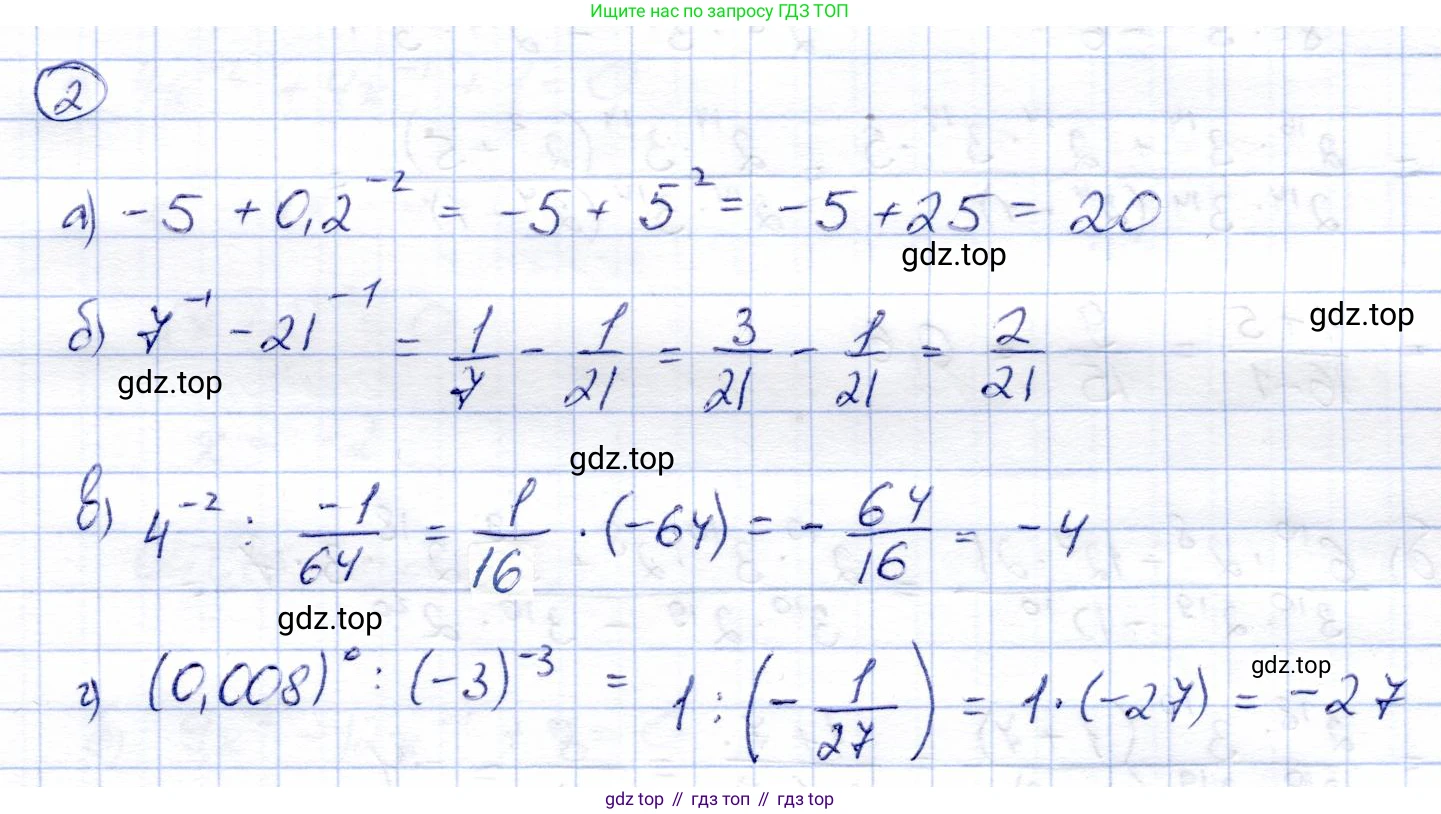 Ищите нас по запросу ГДЗ ТОП
2
а) -5 + 0,2⁻² = -5 + 5² = -5 + 25 = 20
gdz.top
gdz.top
б) 7⁻¹ - 21⁻¹ = 1/7 - 1/21 = 3/21 - 1/21 = 2/21
gdz.top
gdz.top
в) 4⁻² : -1/64 = 1/16 · (-64) = - 64/16 = -4
gdz.top
gdz.top
г) (0,008)⁰ : (-3)⁻³ = 1 : (- 1/27) = 1 · (-27) = -27
gdz top // гдз топ // gdz top